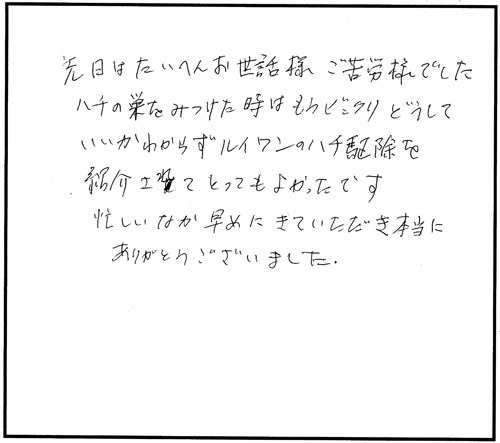 先日はたいへんお世話様 ご苦労様でした
ハチの巣をみつけた時はもうビックリ どうして
いいかわからずルイワンのハチ駆除を
紹介されてとってもよかったです
忙しいなか早めにきていただき本当に
ありがとうございました.